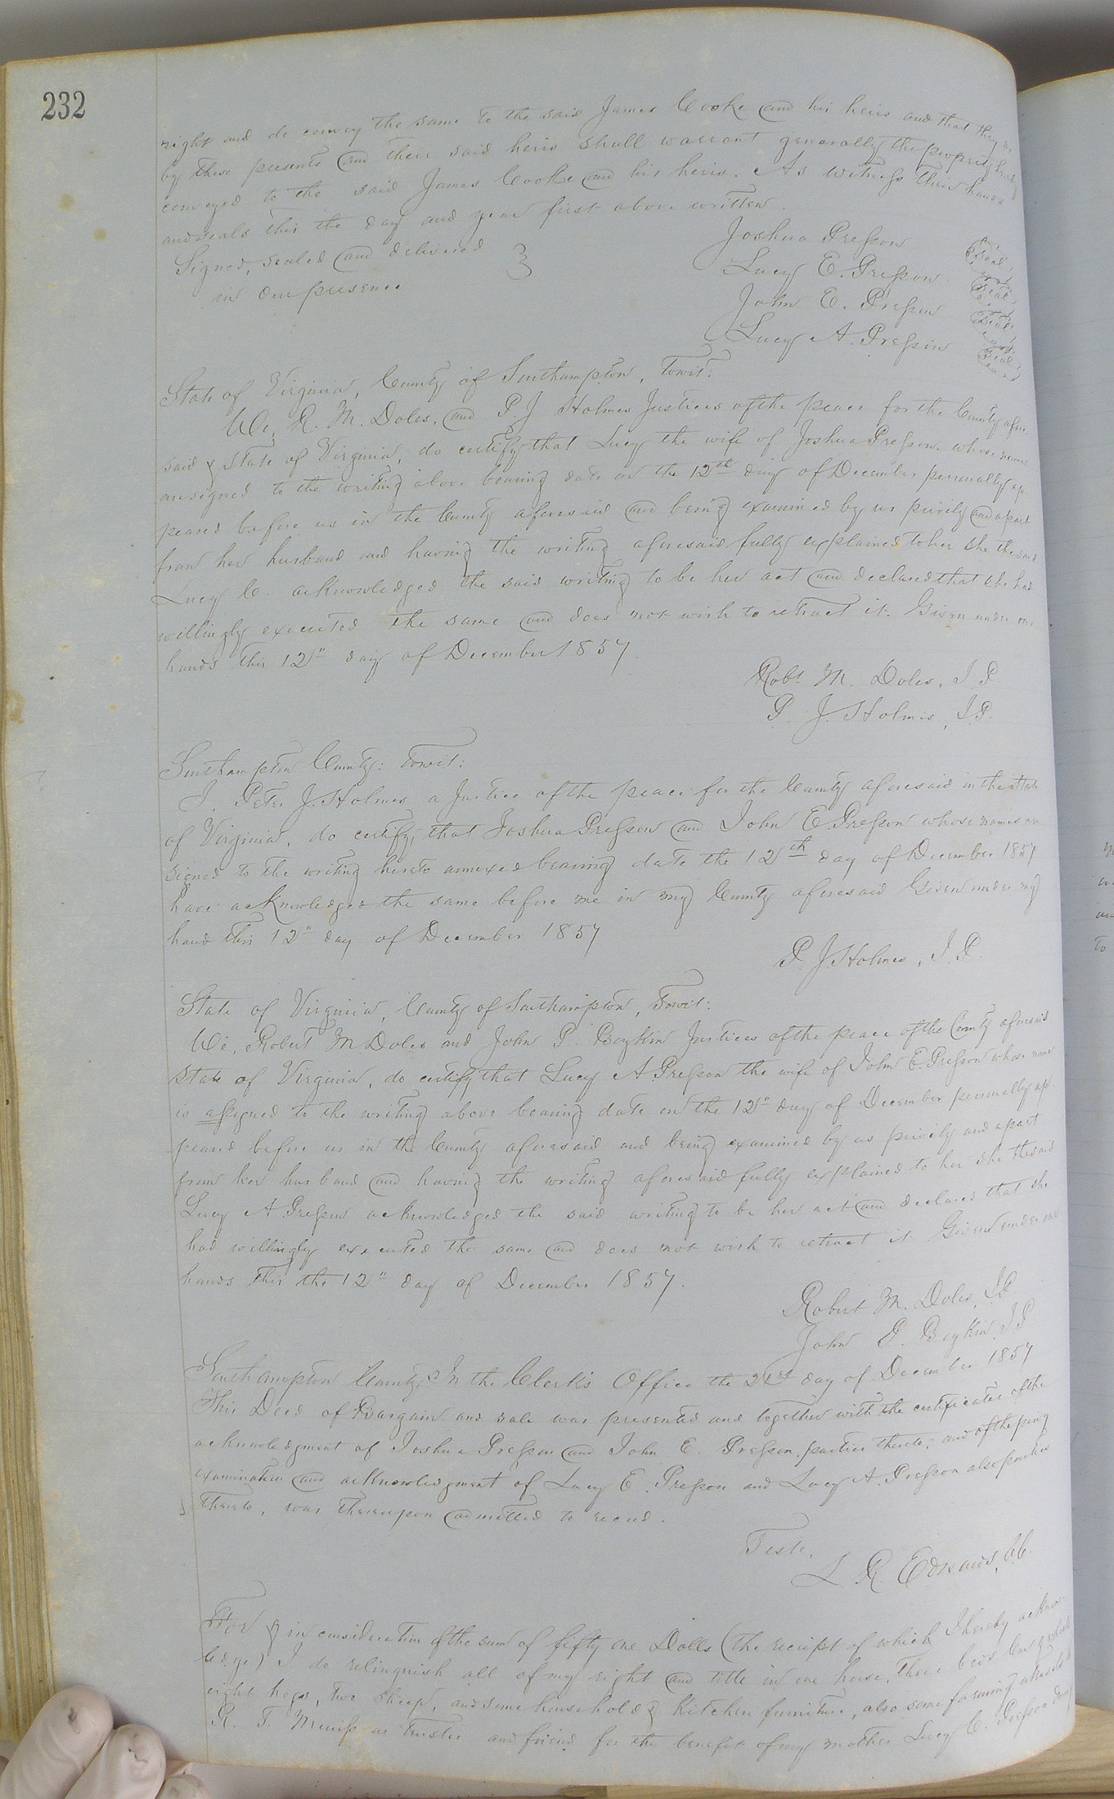 232
right and do convey the same to the said James Cooke and his heirs and that they
by these presents and their said heirs shall warrant generally the property hereby
conveyed to the said James Cooke and his heirs. As witness their hands
and seals this the day and year first above written.
Signed, sealed and delivered
in our presence
Joshua Presson Seal
Lucy E. Presson Seal
John E. Presson Seal
Lucy A. Presson Seal
State of Virginia, County of Southampton, Towit:
We, R. M. Doles, and P. J Holmes Justices of the peace for the County afore
said & State of Virginia, do certify that Lucy the wife of Joshua Presson whose names
are signed to the writing above bearing date on the 12th day of December personally ap
peared before us in the County aforesaid and being examined by us privily and apart
from her husband and having the writing aforesaid fully explained to her she the said
Lucy E. acknowledged the said writing to be her act and declared that she had
willingly executed the same and does not wish to retract it. Given under our
hands this 12" day of December 1857
Robt M. Doles, J P
P. J. Holmes, J.P.
Southampton County: Towit:
I, Peter J. Holmes a Justice of the peace for the County aforesaid in the State
of Virginia, do certify, that Joshua Presson and John E Presson whose names are
signed to the writing hereto annexed bearing date the 12th day of December 1857
have acknowledged the same before me in my County aforesaid Given under my
hand this 12" day of December 1857
P. J. Holmes, J. P.
State of Virginia, County of Southampton, Towit:
We, Robert M Doles and John P. Boykin Justices of the peace of the County aforesaid
State of Virginia, do certify that Lucy A Presson the wife of John E. Presson whose name
is assigned to the writing above bearing date on the 12" day of December personally ap
peared before us in the County aforesaid and being examined by us privily and apart
from her husband and having the writing aforesaid fully explained to her she the said
Lucy A Presson acknowledged the said writing to be her act and declared that she
had willingly executed the same and does not wish to retract it. Given under our
hands this the 12" day of December 1857.
Robert M. Doles, J.P.
John P. Boykin J P
Southampton County: In the Clerk's Office the 21st day of December 1857
This Deed of Bargain and sale was presented and together with the certificates of the
acknowledgment of Joshua Presson and John E. Presson parties thereto, and of the privy
examination and acknowledgment of Lucy E. Presson and Lucy A. Presson also parties
thereto, was thereupon admitted to record.
Teste,
L R. Edwards, C.C.
For & in consideration of the sum of fifty one Dolls (the receipt of which I hereby acknow
ledge) I do relinquish all of my right and title in one horse, three beds
eight hogs, two sheep, and some household & Kitchen furniture, also some farming utensils to
R. T. as trustee and friend for the benefit of my mother Lucy E. Presson